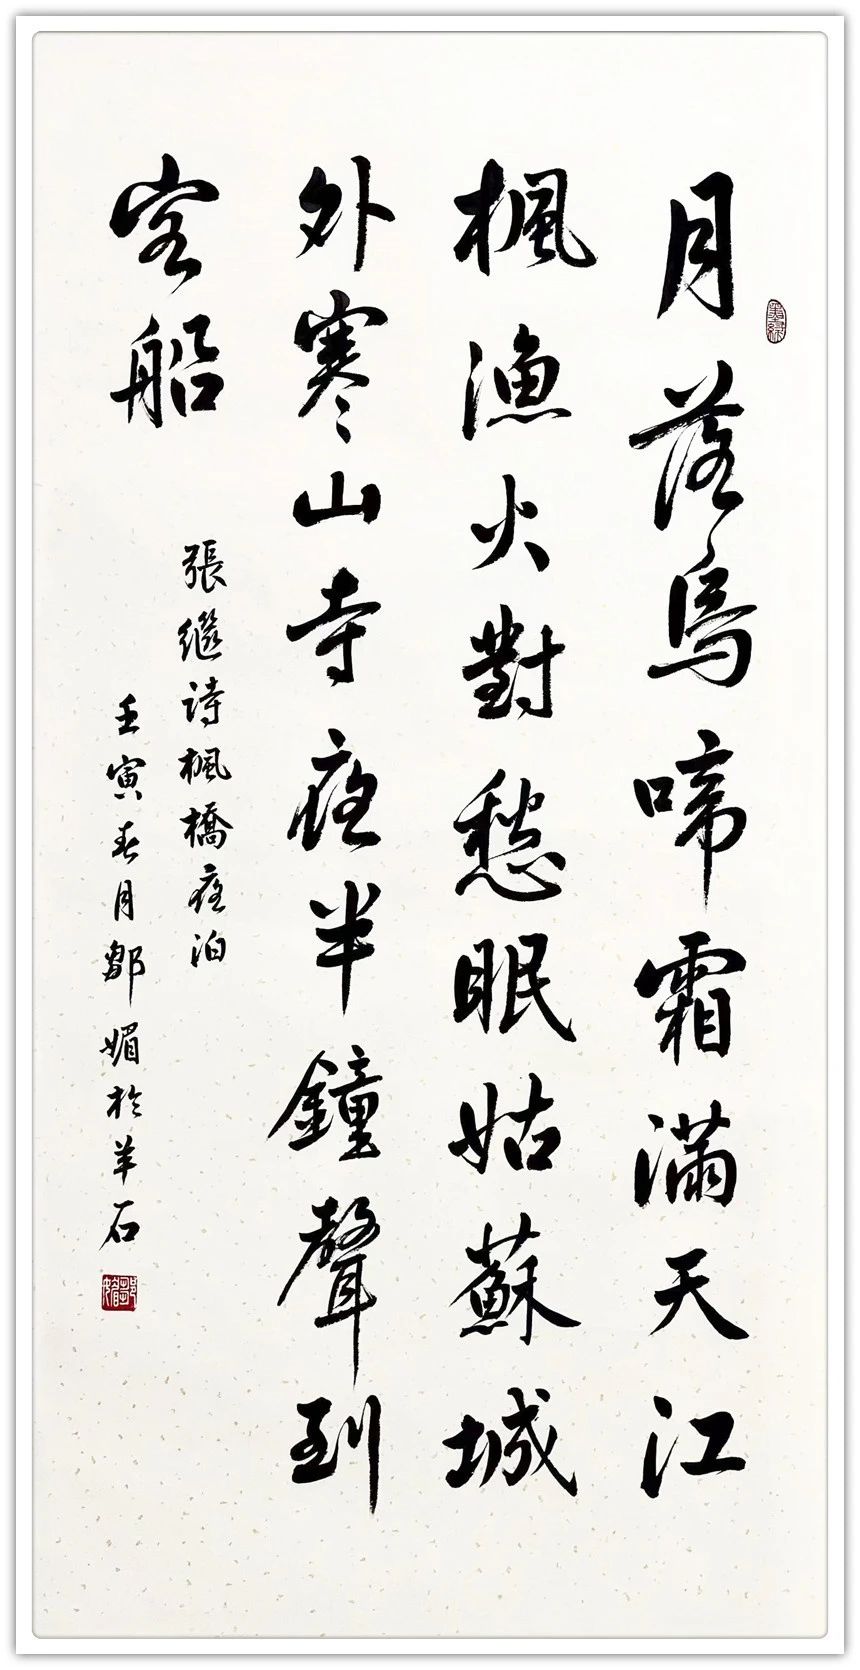 月落烏啼霜滿天江
楓漁火對愁眠姑蘇城
外寒山寺夜半鐘聲到
客船
張繼诗楓橋夜泊
壬寅春月鄒媚於羊石